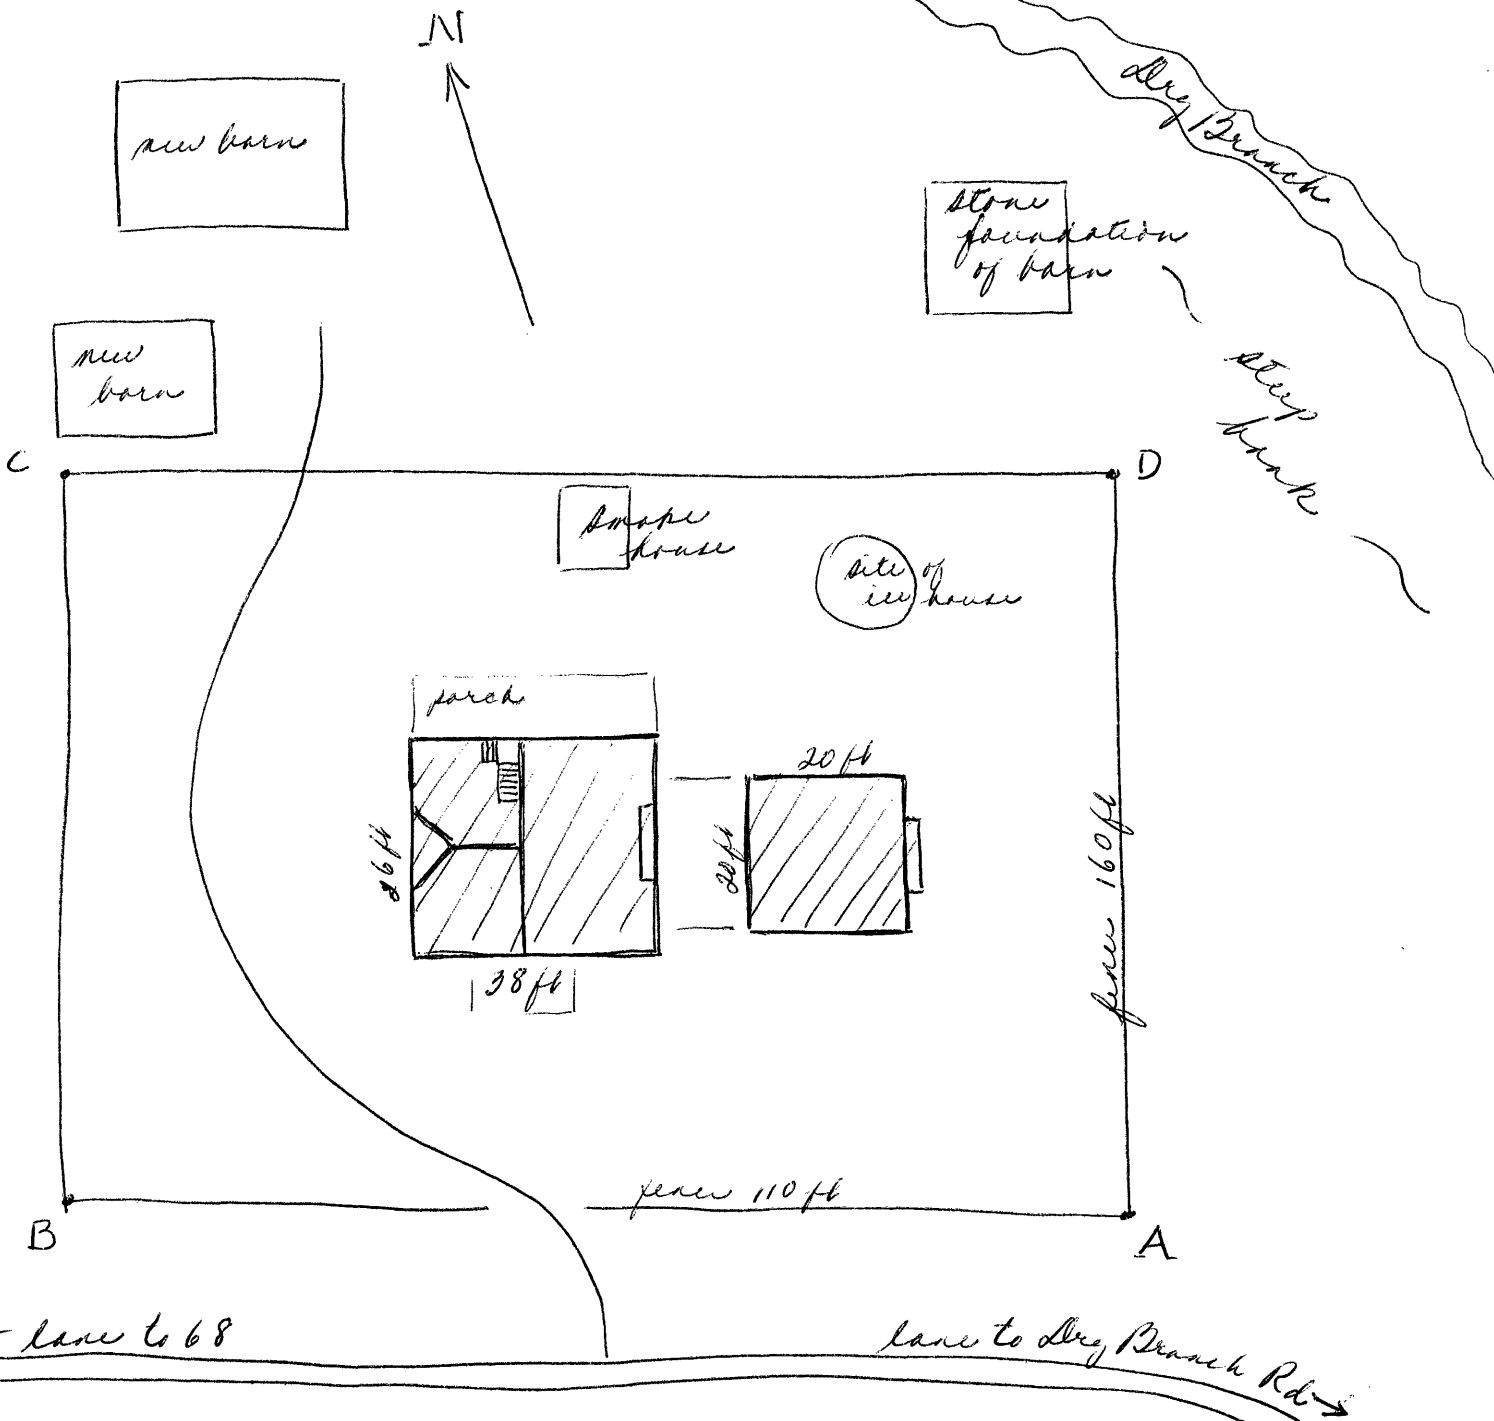 N
new barn
Dry Branch
stone
foundation
of barn
new
barn
steep
bank
C
D
smoke
house
site of
ice house
porch
20 ft
26 ft
20 ft
fence 160 ft
38 ft
fence 110 ft
B
A
lane to 68
lane to Dry Branch Rd